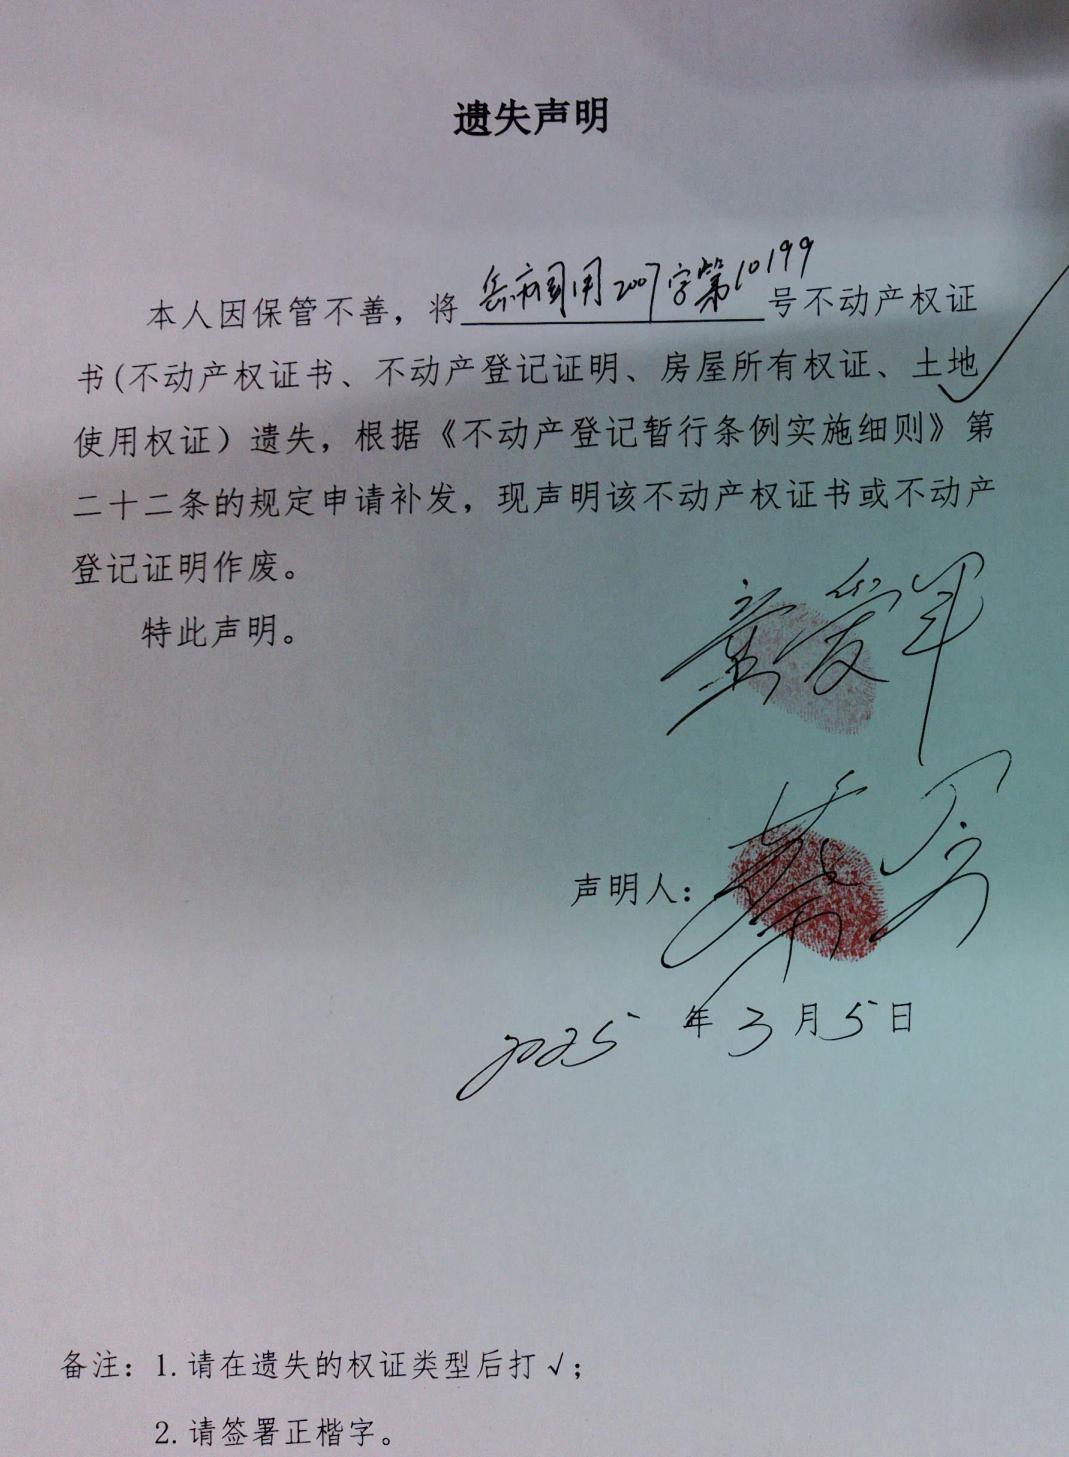 遗失声明
本人因保管不善，将岳市国用2007字第10199号不动产权证
书(不动产权证书、不动产登记证明、房屋所有权证、土地√
使用权证）遗失，根据《不动产登记暂行条例实施细则》第
二十二条的规定申请补发，现声明该不动产权证书或不动产
登记证明作废。
特此声明。
童爱军
声明人：
2025年3月5日
备注：1.请在遗失的权证类型后打√；
2.请签署正楷字。